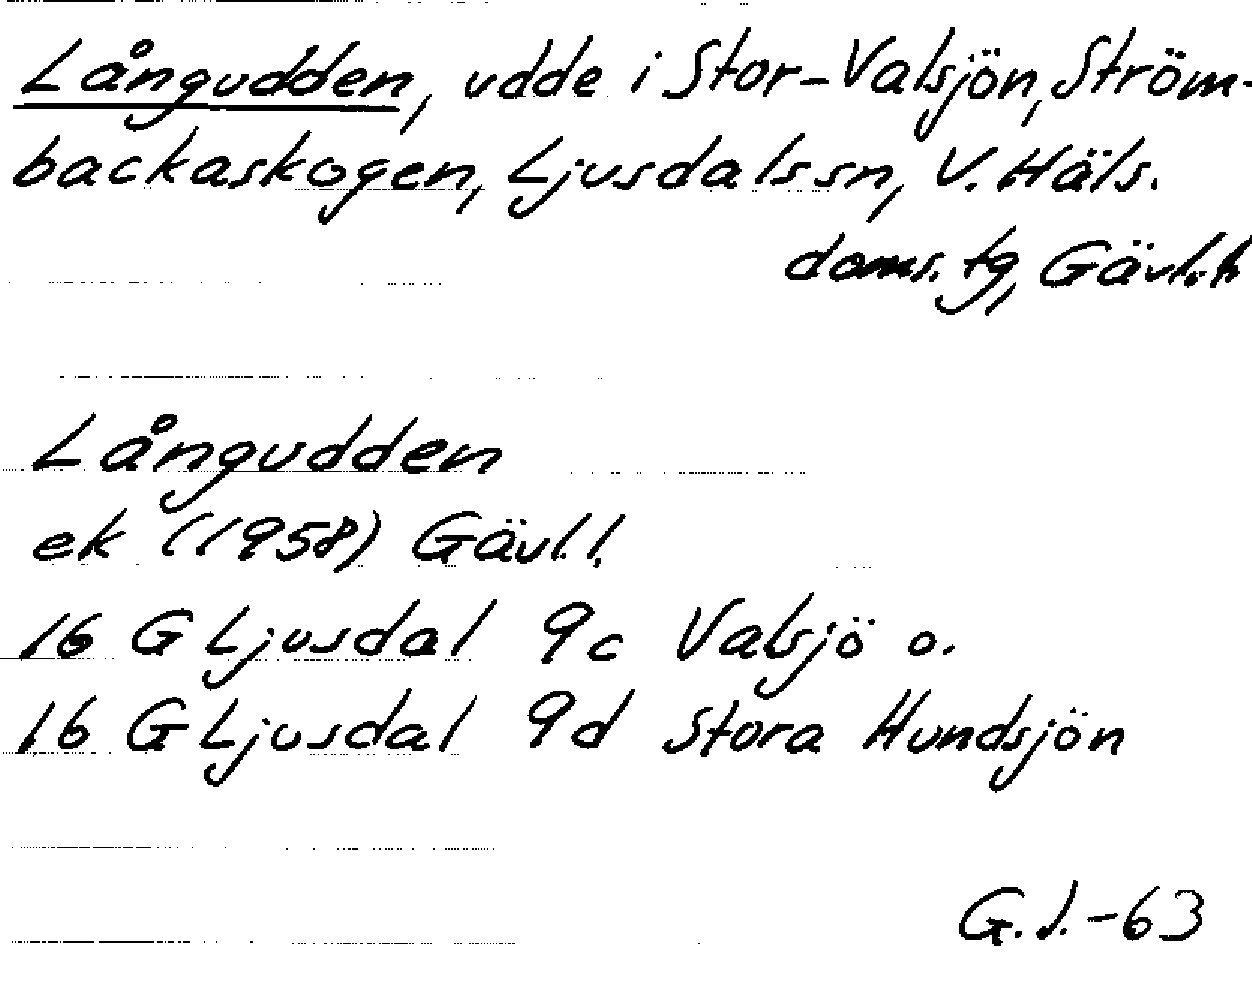 Långudden, udde i Stor-Valsjön, Ström-
backaskogen, Ljusdals sn, V. Häls.
doms. tg, Gävl.
Långudden
ek (1958) Gävl.l.
16 G Ljusdal 9c Valsjö o.
16 G Ljusdal 9d Stora Hundsjön
G.J.-63